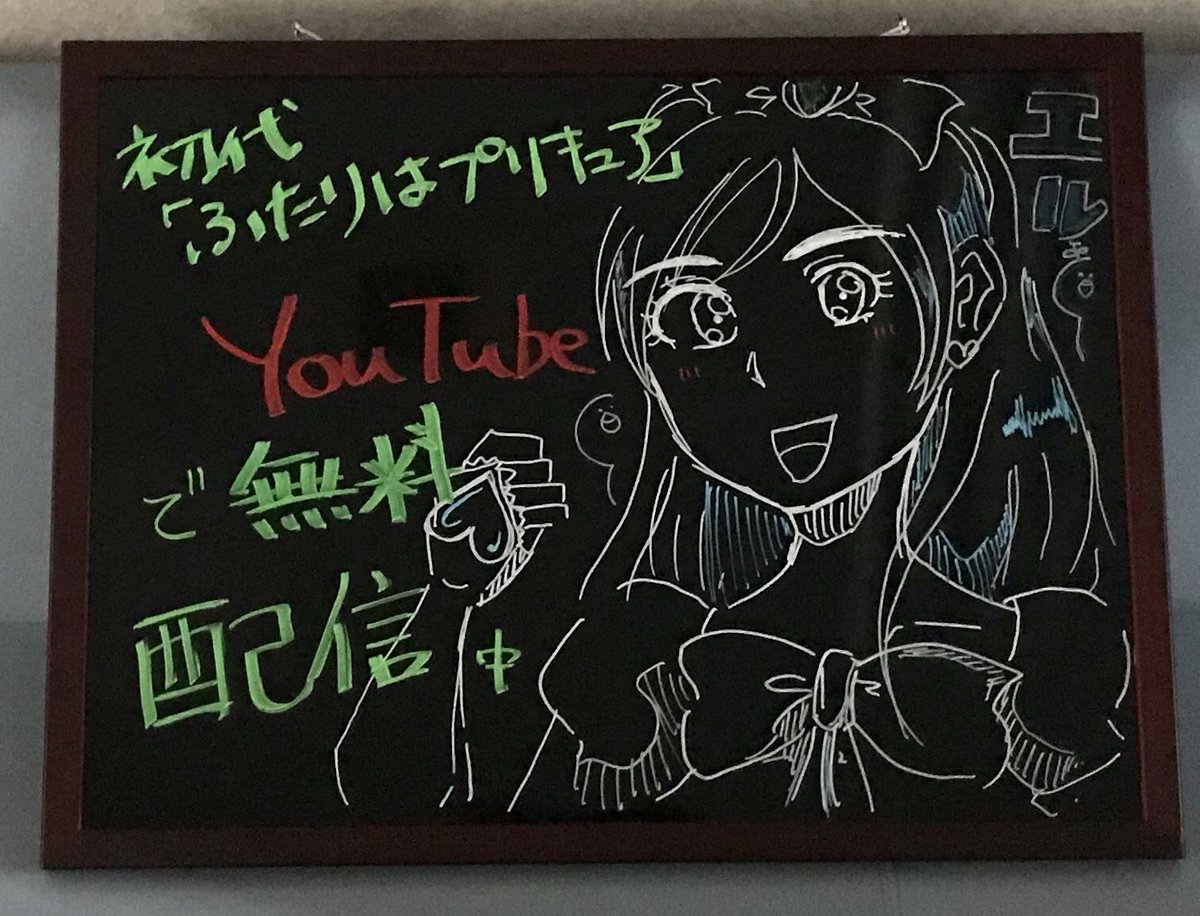 初代
「ふたりはプリキュア」
YouTube
で無料
配信中
エル